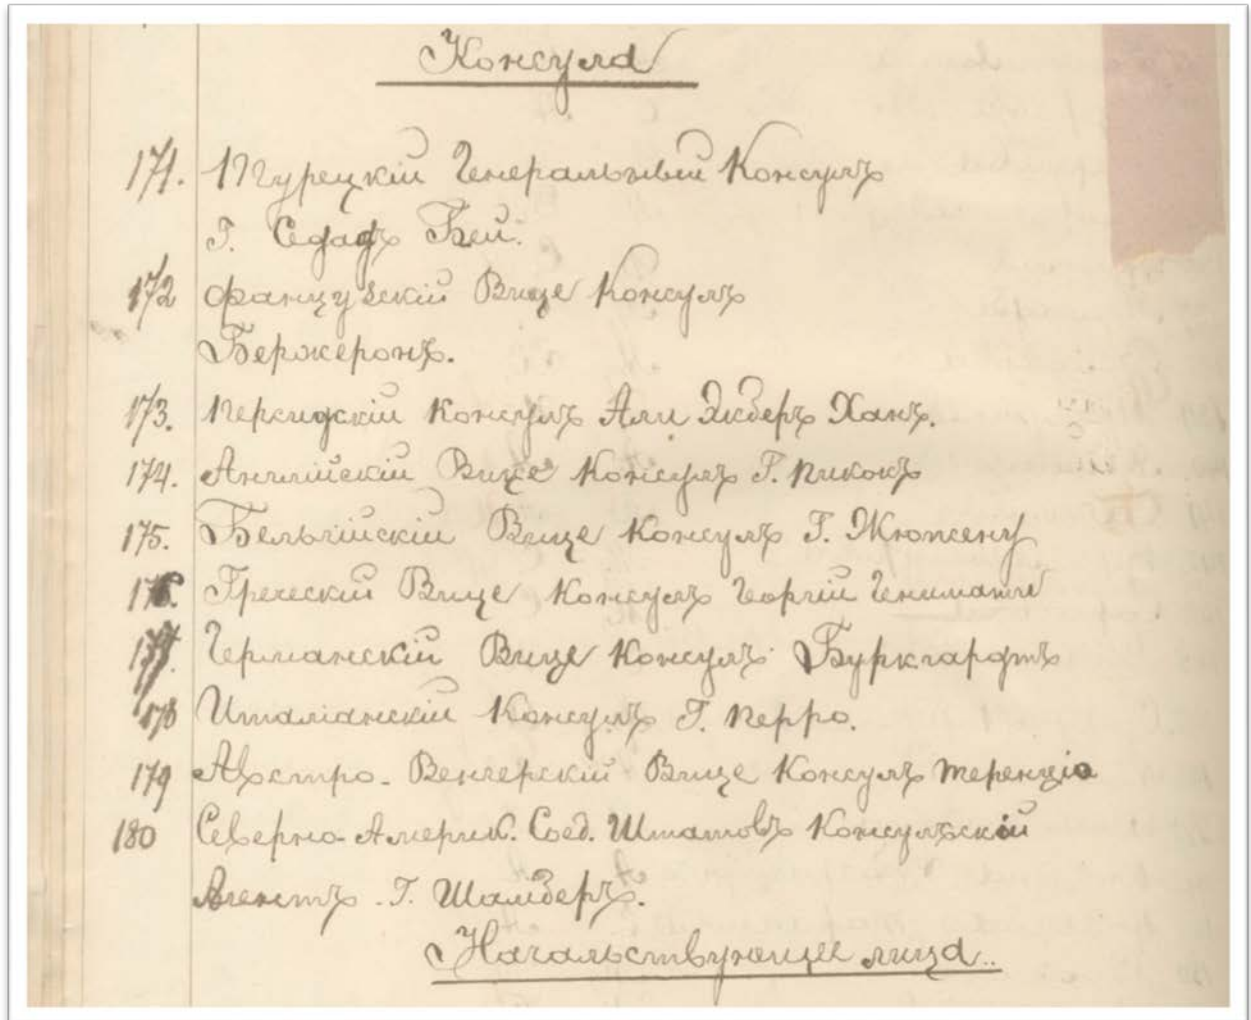 Консула
171. Турецкій Генеральный Консулъ
Г. Седадъ Бей.
172 французскій Вице Консулъ
Бержеронъ.
173. Персидскій Консулъ Али Экберъ Ханъ.
174. Англійскій Вице Консулъ Г. Пикокъ
175. Бельгійскій Вице Консулъ Г. Жюжену
176. Греческій Вице Консулъ Георгій
177. Германскій Вице Консулъ Буркгардтъ
178 Италіанскій Консулъ Г. Перро.
179 Австро-Венгерскій Вице Консулъ Теренціо
180 Северно-Америк. Соед. Штатовъ Консулъскій
Агентъ. Г. Шамберъ.
Начальствующие лица..